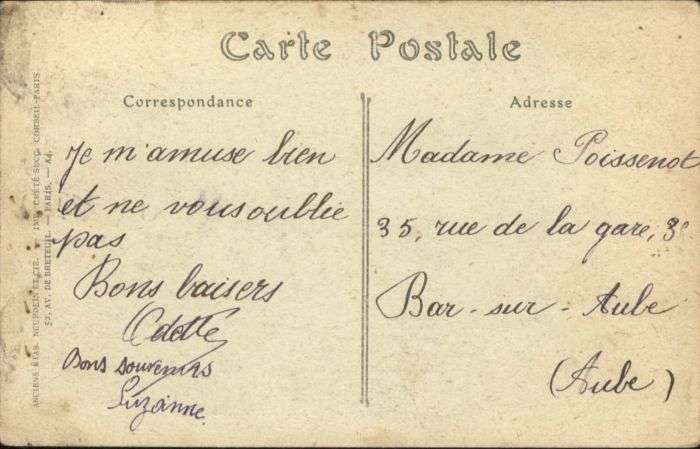 Carte Postale
Correspondance
Adresse
Je m'amuse bien
et ne vous oublie
pas
Bons baisers
Odette
Bons souvenirs
Suzanne
Madame Poissenot
35, rue de la gare, 3e
Bar-sur-Aube
(Aube)
ANCIENS ÉTAB. NEURDEIN ET CIE. — IMP. CRÉTÉ SUCC. CORBEIL-PARIS
52, AV. DE BRETEUIL. — PARIS. — A4.